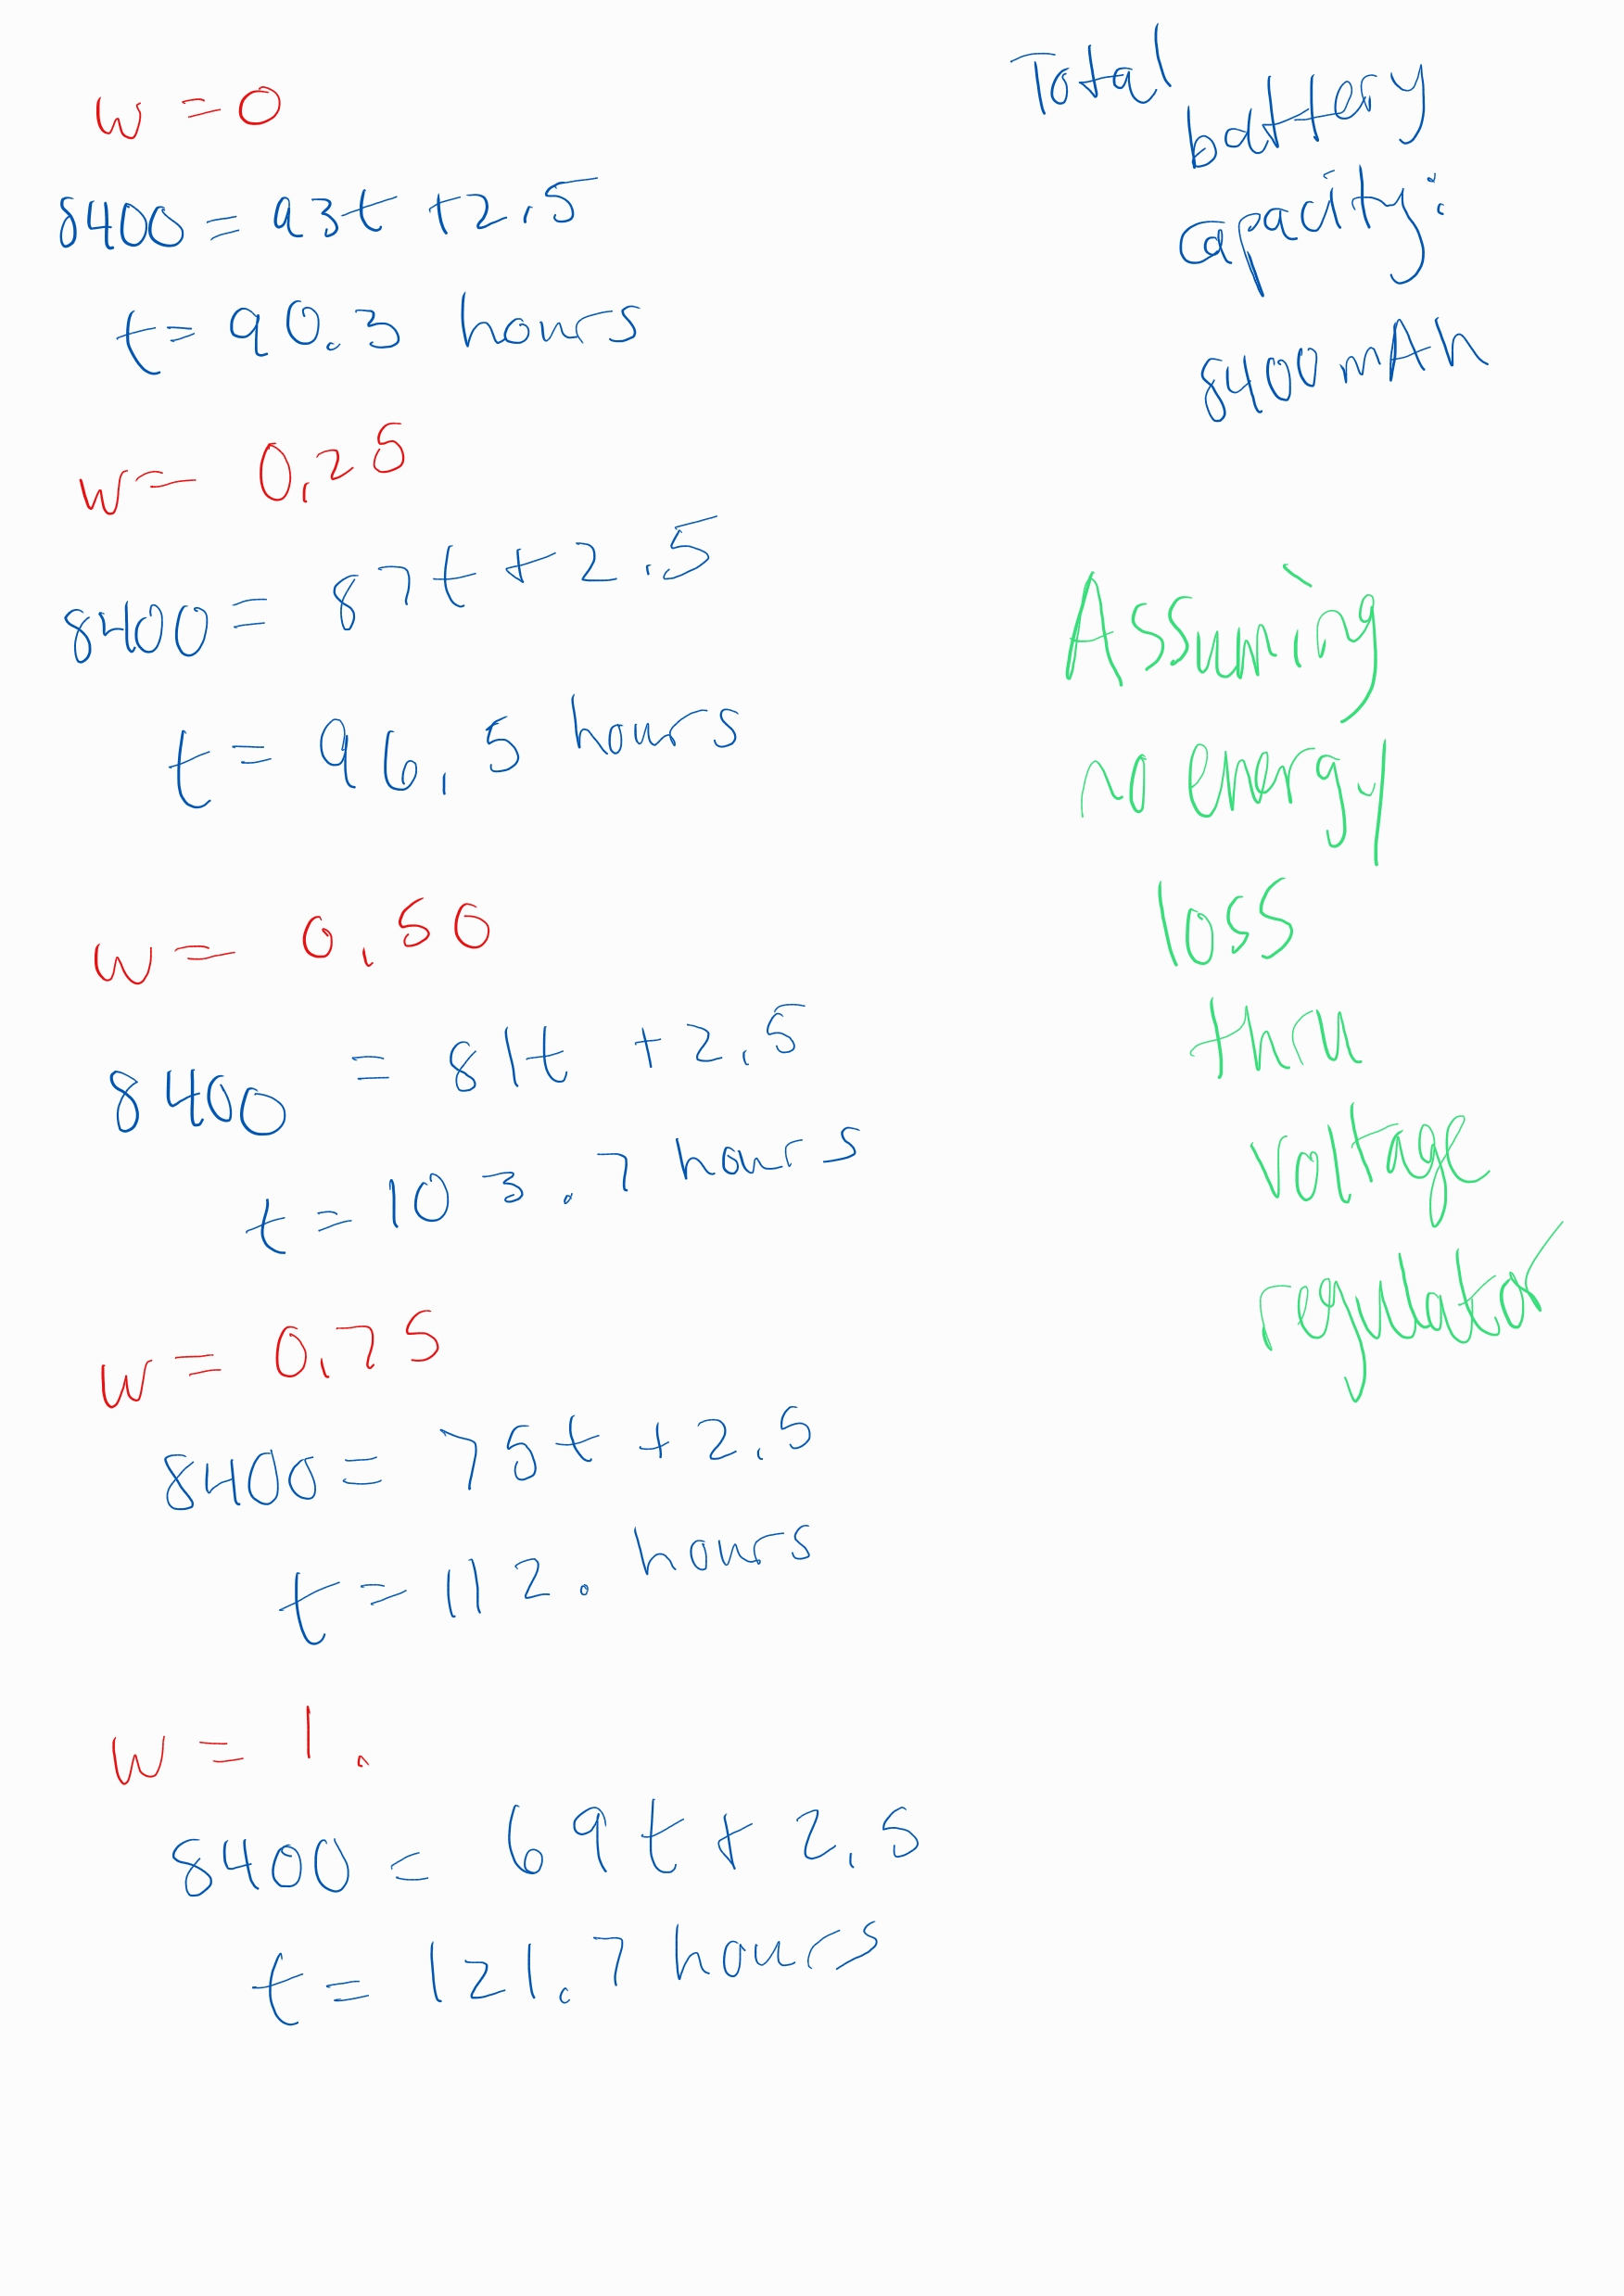 w = 0
8400 = 93t + 2.5
t = 90.3 hours
w = 0.25
8400 = 87t + 2.5
t = 96.5 hours
w = 0.50
8400 = 81t + 2.5
t = 103.7 hours
w = 0.75
8400 = 75t + 2.5
t = 112. hours
w = 1.
8400 = 69t + 2.5
t = 121.7 hours
Total
battery
capacity:
8400 mAh
Assuming
no energy
loss
thru
voltage
regulator